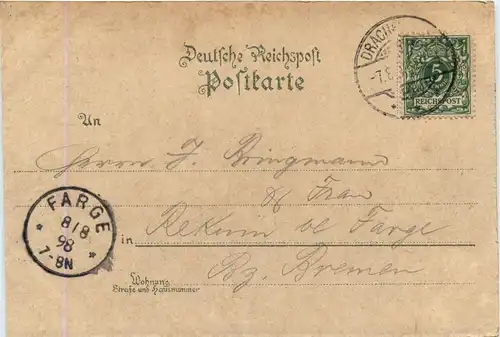 Deutsche Reichspost
Postkarte
DRACH
-7.8.
5
REICHSPOST
An
Herrn J. Bringmann
& Frau
FARGE
8/8
98
7-8N
in Rekum be Farge
Bz. Bremen
Wohnung
Straße und Hausnummer